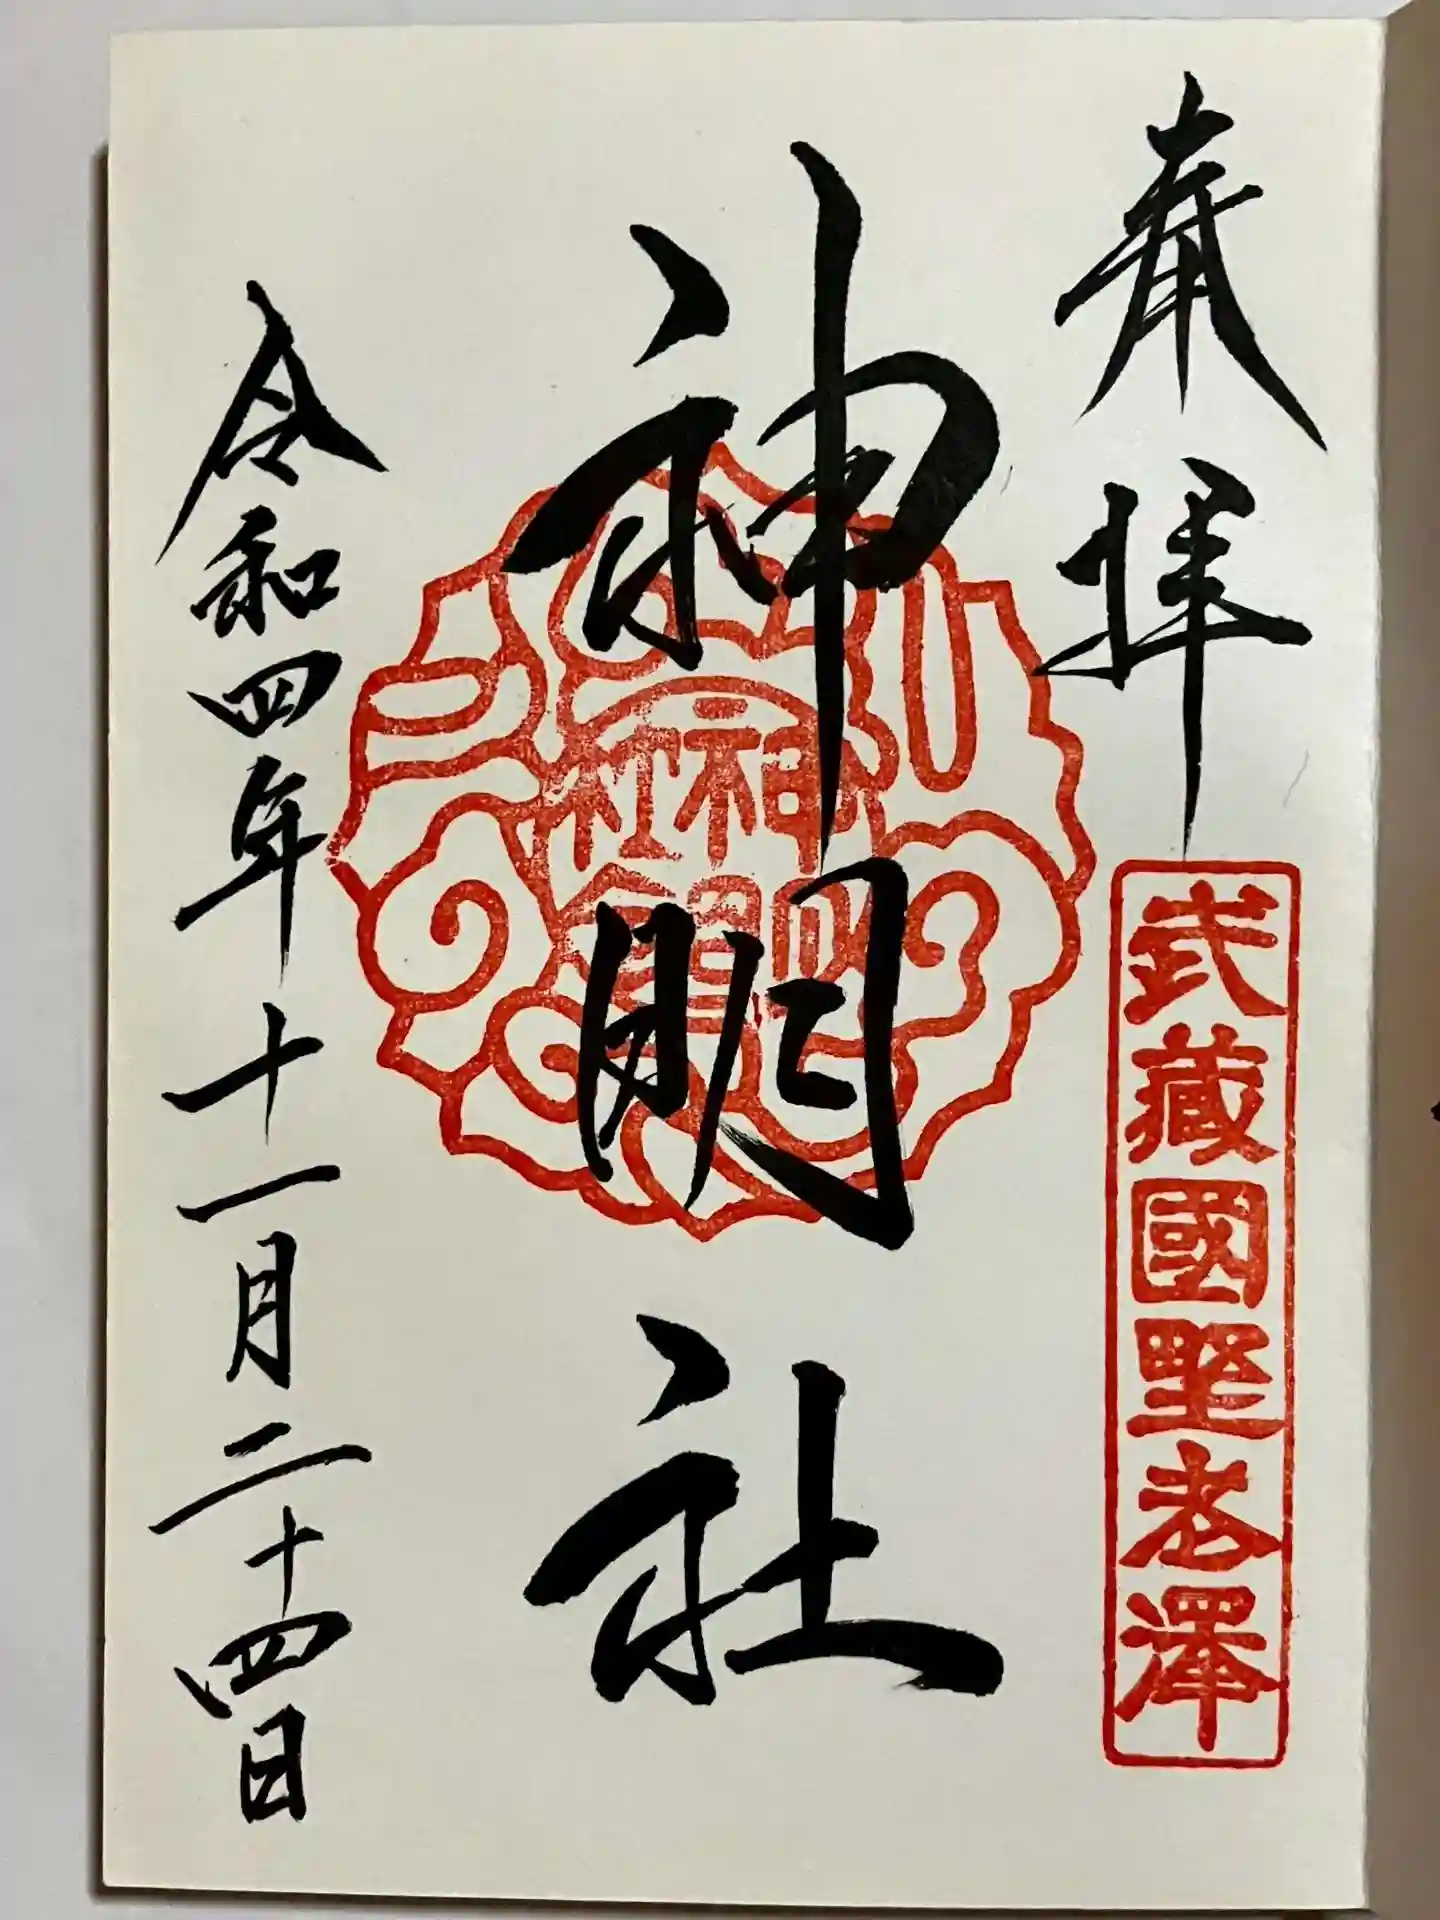 奉拝
武藏國野老澤
神明社
令和四年十一月二十四日